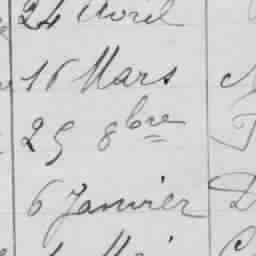 24 Avril
16 Mars
25 8bre
6 Janvier